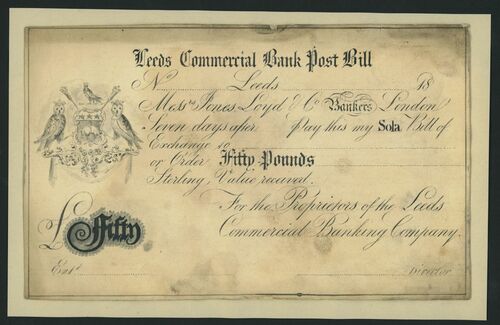 Leeds Commercial Bank Post Bill
No Leeds 18
Messrs Jones Loyd & Co Bankers London
Seven days after Pay this my Sola Bill of
Exchange to
or Order Fifty Pounds
Sterling, Value received.
For the Proprietors of the Leeds
Commercial Banking Company.
£ Fifty
Entd Director